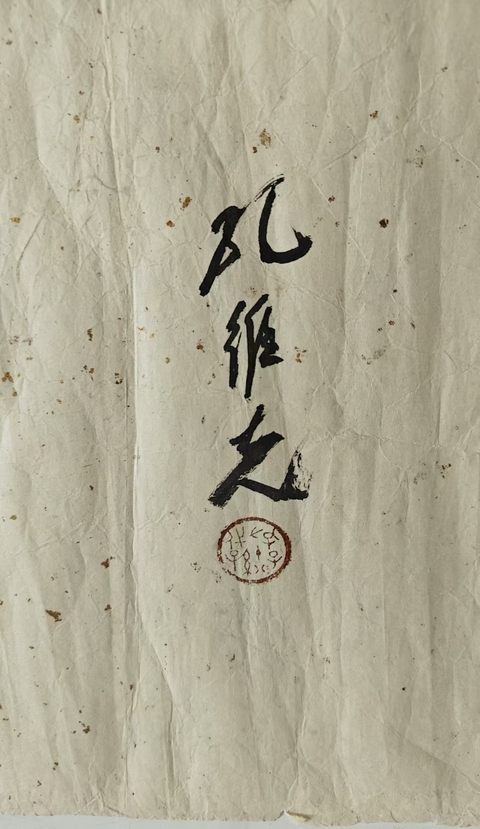 孔維克